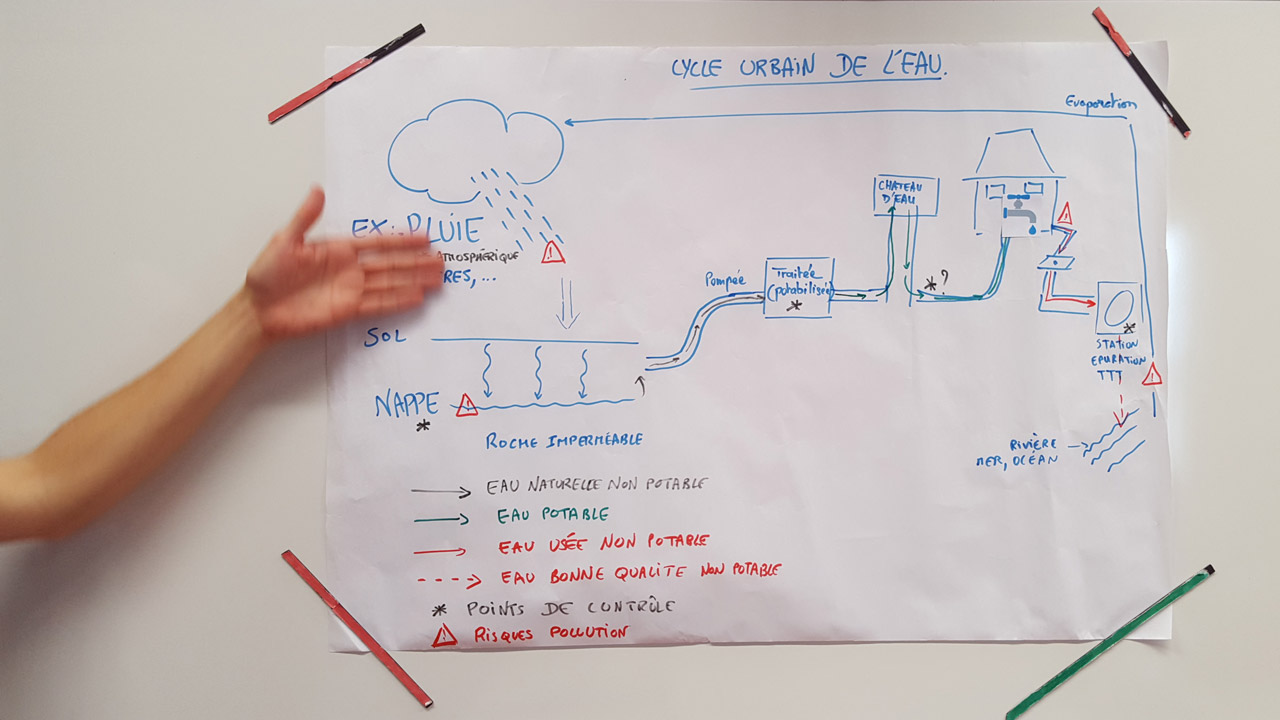 CYCLE URBAIN DE L'EAU.
Evaporation
CHATEAU
D'EAU
EX: PLUIE
ATMOSPHÉRIQUE
RES, ...
Pompée
Traitée
(potabilisée)
*
* ?
*
STATION
EPURATION
TTT
SOL
NAPPE
*
ROCHE IMPERMÉABLE
RIVIÈRE
MER, OCÉAN
EAU NATURELLE NON POTABLE
EAU POTABLE
EAU USÉE NON POTABLE
EAU BONNE QUALITE NON POTABLE
* POINTS DE CONTRÔLE
RISQUES POLLUTION